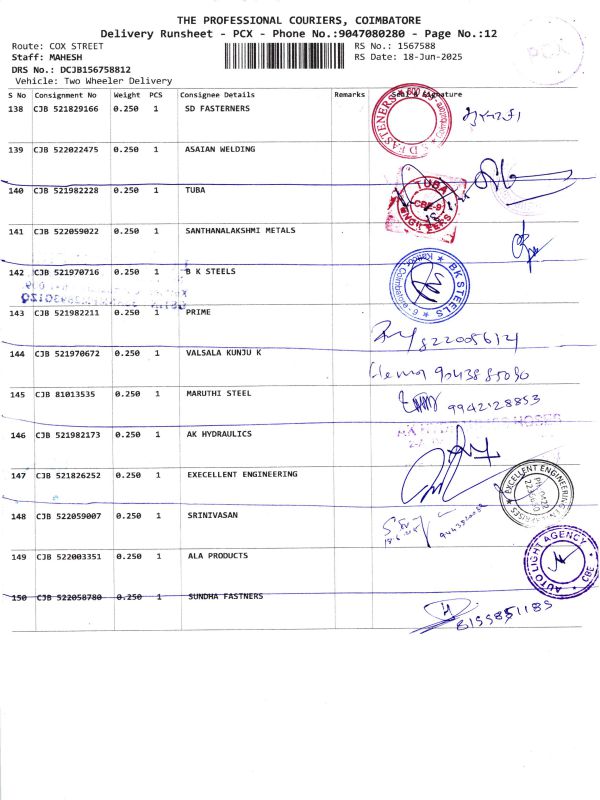 THE PROFESSIONAL COURIERS, COIMBATORE
Delivery Runsheet - PCX - Phone No.:9047080280 - Page No.:12
Route: COX STREET
Staff: MAHESH
DRS No.: DCJB156758812
Vehicle: Two Wheeler Delivery
RS No.: 1567588
RS Date: 18-Jun-2025
PCX
S No Consignment No Weight PCS Consignee Details Remarks Seal & Signature
138 CJB 521829166 0.250 1 SD FASTERNERS
139 CJB 522022475 0.250 1 ASAIAN WELDING
140 CJB 521982228 0.250 1 TUBA
TUBA
CBE-9
ENGINEERS
141 CJB 522059022 0.250 1 SANTHANALAKSHMI METALS
142 CJB 521970716 0.250 1 B K STEELS
BK STEELS
143 CJB 521982211 0.250 1 PRIME
8220056121
144 CJB 521970672 0.250 1 VALSALA KUNJU K
Hema 9043885090
145 CJB 81013535 0.250 1 MARUTHI STEEL
9942128853
146 CJB 521982173 0.250 1 AK HYDRAULICS
147 CJB 521826252 0.250 1 EXECELLENT ENGINEERING
EXCELLENT ENGINEERING ENTERPRISES
148 CJB 522059007 0.250 1 SRINIVASAN
149 CJB 522003351 0.250 1 ALA PRODUCTS
AUTO LIGHT AGENCY CBE
150 CJB 522058780 0.250 1 SUNDHA FASTNERS